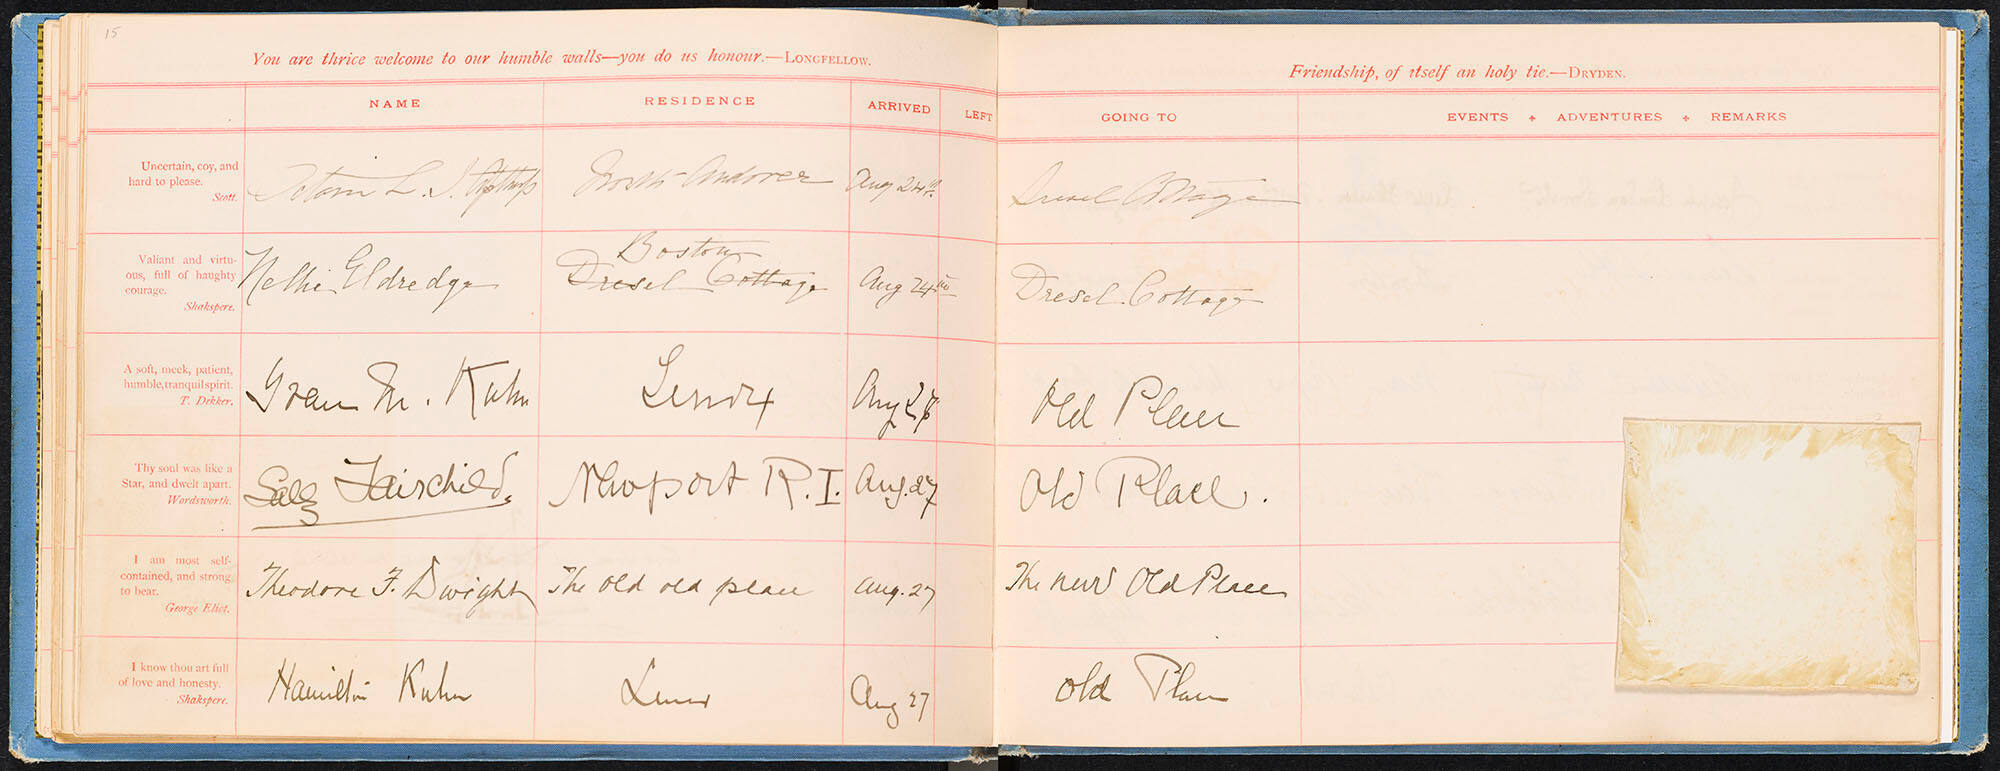 15
You are thrice welcome to our humble walls—you do us honour.—LONGFELLOW.
Friendship, of itself an holy tie.—DRYDEN.
NAME RESIDENCE ARRIVED LEFT GOING TO EVENTS + ADVENTURES + REMARKS
Uncertain, coy, and
hard to please.
Scott.
North Andover Aug 24th Dresel Cottage
Valiant and virtu-
ous, full of haughty
courage.
Shakspere.
Boston
Nellie Eldredge Dresel Cottage Aug 24th Dresel Cottage
A soft, meek, patient,
humble, tranquil spirit.
T. Dekker.
M. Kuhn Lenox Aug Old Place
Thy soul was like a
Star, and dwelt apart.
Wordsworth.
Sally Fairchild. Newport R.I. Aug. 27 Old Place.
I am most self-
contained, and strong
to bear.
George Eliot.
Theodore F. Dwight The old old place Aug. 27 The new Old Place
I know thou art full
of love and honesty.
Shakspere.
Hamilton Kuhn Lenox Aug 27 Old Place